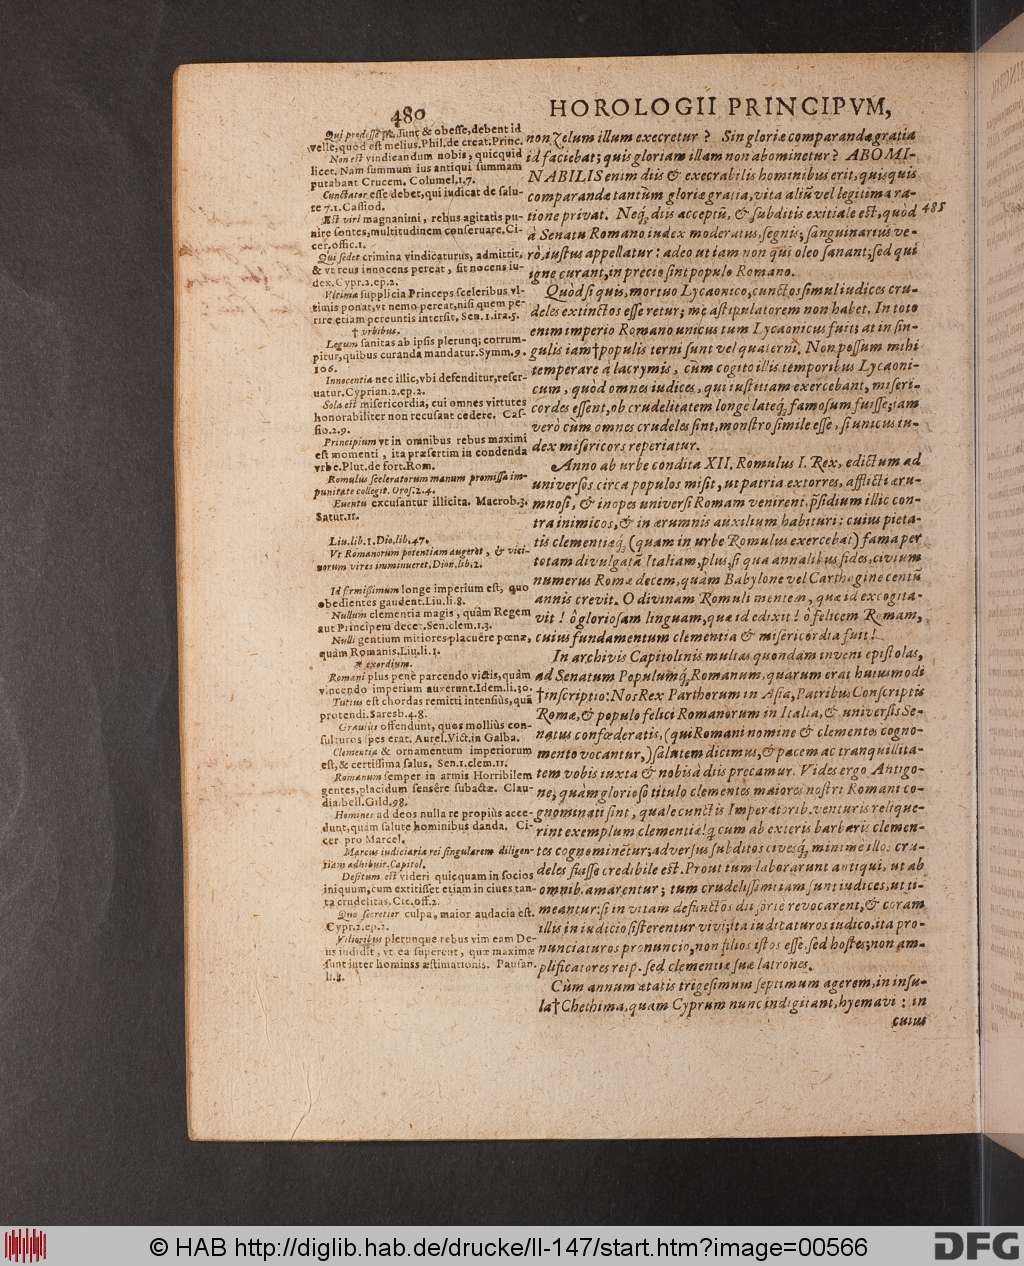 480
HOROLOGII PRINCIPVM,
Qui prodesse pt, sunt & obesse, debent id
velle, quod est melius. Phil. de creat. Princ.
Non est vindicandum nobis, quicquid
licet. Nam summum ius antiqui summam
putabant Crucem. Columel. 1.7.
Cunctator esse debet, qui iudicat de salu-
te 7.1. Cassiod.
Est viri magnanimi, rebus agitatis pu-
nire sontes, multitudinem conseruare. Ci-
cer. offic. 1.
Qui sedet crimina vindicaturus, admittit,
& vt reus innocens pereat, fit nocens iu-
dex. Cypr. 2. ep. 2.
Vltima supplicia Princeps sceleribus vl-
timis ponat, vt nemo pereat, nisi quem pe-
rire etiam pereuntis intersit. Sen. 1. ira. 5.
† vrbibus.
Legum sanitas ab ipsis plerunq; corrum-
pitur, quibus curanda mandatur. Symm. 9.
106.
Innocentia nec illic, vbi defenditur, reser-
uatur. Cyprian. 2. ep. 2.
Sola est misericordia, cui omnes virtutes
honorabiliter non recusant cedere. Cas-
sio. 2.9.
Principium vt in omnibus rebus maximi
est momenti, ita præsertim in condenda
vrbe. Plut. de fort. Rom.
Romulus sceleratorum manum promissa im-
punitate collegit. Oros. 2.4.
Euentu excusantur illicita. Macrob. 3.
Satur. 11.
Liu. lib. 1. Dio. lib. 47.
Vt Romanorum potentiam augeret, & vici-
norum vires imminueret. Dion. lib. 2.
Id firmissimum longe imperium est, quo
obedientes gaudent. Liu. li. 8.
Nullum clementia magis, quàm Regem
aut Principem decet. Sen. clem. 1.3.
Nulli gentium mitiores placuêre pœnæ,
quàm Romanis. Liu. li. 1.
* exordium.
Romani plus penè parcendo victis, quàm
vincendo imperium auxerunt. Idem. li. 30.
Tutius est chordas remitti intensiùs, quã
protendi. Saresb. 4.8.
Grauiùs offendunt, quos molliùs con-
sulturos spes erat. Aurel. Vict. in Galba.
Clementia & ornamentum imperiorum
est, & certissima salus. Sen. 1. clem. 11.
Romanum semper in armis Horribilem
gentes, placidum sensêre subactæ. Clau-
dia. bell. Gild. 98.
Homines ad deos nulla re propiùs acce-
dunt, quàm salute hominibus danda. Ci-
cer. pro Marcel.
Marcus iudiciaria rei singularem diligen-
tiam adhibuit. Capitol.
Desitum est videri quicquam in socios
iniquum, cum extitisset etiam in ciues tan-
ta crudelitas. Cic. off. 2.
Quo secretior culpa, maior audacia est.
Cypr. 2. ep. 2.
Vilioribus plerunque rebus vim eam De-
us indidit, vt ea superent, quæ maximæ
sunt inter homines æstimationis. Pausan.
li. 8.
non zelum illum execretur? Sin gloriæ comparandæ gratia
id faciebat; quis gloriam illam non abominetur? ABOMI-
NABILIS enim diis & execrabilis hominibus erit, quisquis
comparandæ tantùm gloriæ gratia, vita aliũ vel legitima ra-
tione privat. Neq; diis acceptũ, & subditis exitiale est, quòd 485
à Senatu Romano iudex moderatus, segnis; sanguinarius ve-
rò, iustus appellatur: adeo ut iam non qui oleo sanant; sed qui
igne curant, in precio sint populo Romano.
Quòd si quis, mortuo Lycaonico, cunctos simul iudices cru-
deles extinctos esse retur; me astipulatorem non habet. In toto
enim imperio Romano unicus tum Lycaonicus fuit; at in sin-
gulis iam † populis terni sunt vel quaterni. Non possum mihi
temperare à lacrymis, cùm cogito illis temporibus Lycaoni-
cum, quòd omnes iudices, qui iustitiam exercebant, miseri-
cordes essent, ob crudelitatem longè lateq; famosum fuisse; iam
verò cùm omnes crudeles sint, monstro simile esse, si unicus iu-
dex misericors reperiatur.
Anno ab urbe condita XII. Romulus I. Rex, edictum ad
universos circa populos misit, ut patria extorres, afflicti æru-
mnosi, & inopes universi Romam venirent, p̃sidium illic con-
tra inimicos, & in ærumnis auxilium habituri: cuius pieta-
tis clementiæq; (quam in urbe Romulus exercebat) fama per
totam divulgata Italiam, plus, si qua annalibus fides, civium
numerus Romæ decem, quàm Babylone vel Carthagine centũ
annis crevit. O divinam Romuli mentem, quæ id excogita-
vit! ô gloriosam linguam, quæ id edixit! ô felicem Romam,
cuius fundamentum clementia & misericordia fuit!
In archivis Capitolinis multas quondam inveni epistolas,
ad Senatum Populumq; Romanum, quarum erat huiusmodi
† inscriptio: Nos Rex Parthorum in Asia, Patribus Conscriptis
Romæ, & populo felici Romanorum in Italia, & universis Se-
natus confœderatis, (qui Romani nomine & clementes cogno-
mento vocantur,) salutem dicimus, & pacem ac tranquillita-
tem vobis iuxta & nobis à diis precamur. Vides ergo Antigo-
ne, quàm glorioso titulo clementes maiores nostri Romani co-
gnominati sint, quale cunctis Imperatorib. venturis relique-
rint exemplum clementiæ! q̃ cum ab exteris barbaris clemen-
tes cognominẽtur; adversus subditos civesq; minimè illos cru-
deles fuisse credibile est. Prout tum laborarunt antiqui, ut ab
omnib. amarentur; tum crudelissimi iam sunt iudices, ut ti-
meantur: si in vitam defunctos dii fortè revocarent, & coram
illis in iudicio sisterentur vivi; ita iudicaturos iudico, ita pro-
nunciaturos pronuncio, non filios istos esse, sed hostes; non am-
plificatores reip. sed clementiæ suæ latrones.
Cùm annum ætatis trigesimum septimum agerem, in insu-
la † Chethima, quam Cyprum nunc indigitant, hyemavi: in
cuius
© HAB http://diglib.hab.de/drucke/li-147/start.htm?image=00566
DFG